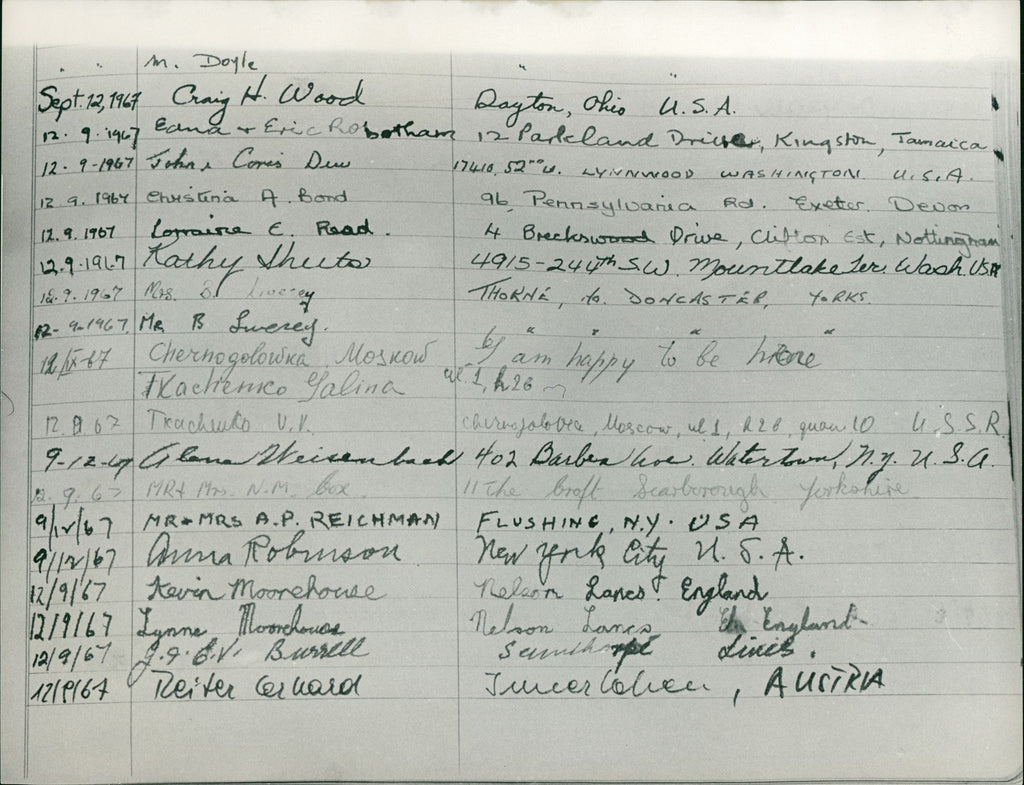 " " M. Doyle " "
Sept. 12, 1967 Craig H. Wood Dayton, Ohio U.S.A.
12. 9. 1967 Edna + Eric Robotham 12 Parkland Drive, Kingston, Jamaica
12. 9-1967 John & Doris Dew 17410, 52nd W. LYNNWOOD WASHINGTON. U.S.A.
12. 9. 1967 Christina A. Bond 96, Pennsylvania Rd. Exeter. Devon
12. 9. 1967 Lorraine E. Read. 4 Breckswood Drive, Clifton Est, Nottingham
12.9.1967 Kathy Shuts 4915-244th S.W. Mountlake Ter. Wash. USA
12.9.1967 Mrs. B Livesey THORNE, Nr. DONCASTER, YORKS.
12-9-1967. Mr B Livesey. " " " "
12/IX-67 Chernogolowka Moskow I am happy to be here
Tkachenko Galina ul. 1, h 26
12. 9 67 Tkachenko V.V. Chernogolovka, Moscow, ul 1, h 26, quar 10 U.S.S.R.
9-12-67 Alana Weisenbach 402 Barben Ave. Watertown, N.y. U.S.A.
12. 9. 67 MR+ Mrs. N.M. Cox. 11 The Croft Scarborough Yorkshire
9/12/67 MR + MRS A.P. REICHMAN FLUSHING, N.Y. USA
9/12/67 Anna Robinson New York City U.S.A.
12/9/67 Kevin Moorehouse Nelson Lancs. England
12/9/67 Lynne Moorehouse Nelson Lancs England-
12/9/67 J.J. E.V. Burrell Scunthorpe Lincs.
12/9/67 Reiter Gerhard , AUSTRIA